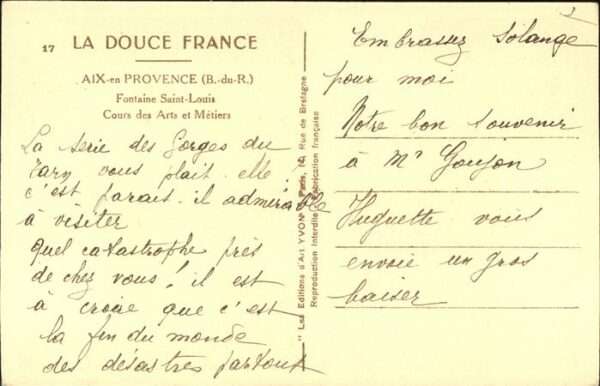 17
LA DOUCE FRANCE
AIX-en PROVENCE (B.-du-R.)
Fontaine Saint-Louis
Cours des Arts et Métiers
La serie des Gorges du
Tarn vous plait. elle
c'est parait. il admirable
à visiter
quel catastrophe près
de chez vous! il est
à croire que c'est
la fin du monde
des désastres partout
"Les Editions d'Art YVON" Paris, Rue de Bretagne
Reproduction Interdite Fabrication française
2
Embrassez Solange
pour moi
Notre bon souvenir
à Mr Goujon
Huguette vous
envoie un gros
baiser